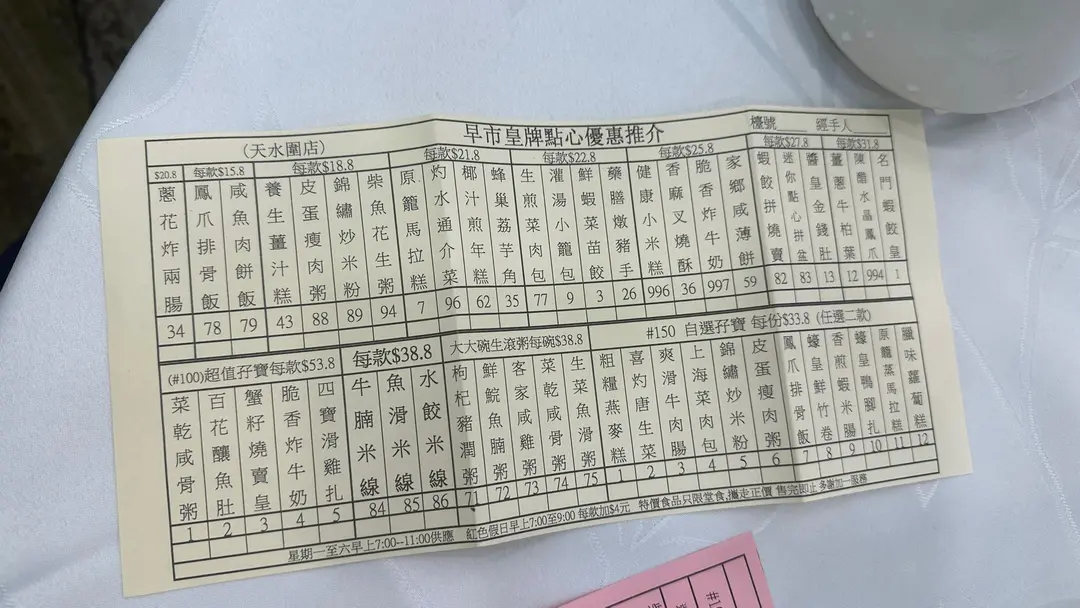 早市皇牌點心優惠推介
檯號 經手人
(天水圍店)
$20.8 每款$15.8 每款$18.8 每款$21.8 每款$22.8 每款$25.8 每款$27.8 每款$31.8
蔥花炸兩腸 34
鳳爪排骨飯 78
咸魚肉餅飯 79
養生薑汁糕 43
皮蛋瘦肉粥 88
錦繡炒米粉 89
柴魚花生粥 94
原籠馬拉糕 7
灼水通介菜 96
椰汁煎年糕 62
蜂巢荔芋角 35
生煎菜肉包 77
灌湯小籠包 9
鮮蝦菜苗餃 3
藥膳燉豬手 26
健康小米糕 996
香麻叉燒酥 36
脆香炸牛奶 997
家鄉咸薄餅 59
蝦餃拼燒賣 82
迷你點心拼盆 83
醬皇金錢肚 13
薑蔥牛柏葉 12
陳醋水晶鳳爪 994
名門蝦餃皇 1
(#100)超值孖寶每款$53.8
菜乾咸骨粥 1
百花釀魚肚 2
蟹籽燒賣皇 3
脆香炸牛奶 4
四寶滑雞扎 5
每款$38.8
牛腩米線 84
魚滑米線 85
水餃米線 86
大大碗生滾粥每碗$38.8
枸杞豬潤粥 71
鮮鯇魚腩粥 72
客家咸雞粥 73
菜乾咸骨粥 74
生菜魚滑粥 75
#150 自選孖寶 每份$33.8 (任選二款)
粗糧燕麥糕 1
喜灼唐生菜 2
爽滑牛肉腸 3
上海菜肉包 4
錦繡炒米粉 5
皮蛋瘦肉粥 6
鳳爪排骨飯 7
蠔皇鮮竹卷 8
香煎蝦米腸 9
蠔皇鴨腳扎 10
原籠蒸馬拉糕 11
臘味蘿蔔糕 12
星期一至六早上7:00--11:00供應 紅色假日早上7:00至9:00 每款加$4元 特價食品只限堂食,攜走正價 售完即止 多謝加一服務